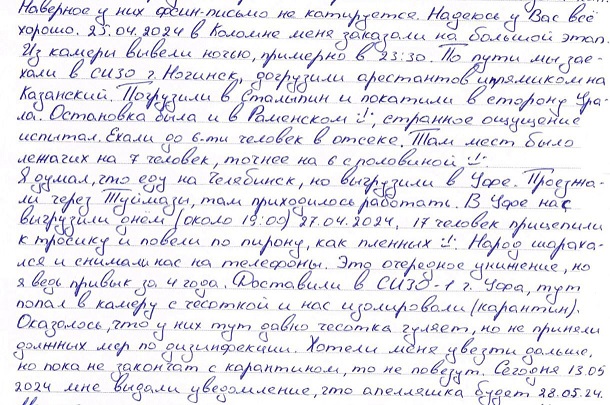 Наверное у них фсин-письмо не катируется. Надеюсь у Вас всё
хорошо. 25.04.2024 в Коломне меня заказали на большой этап.
Из камеры вывели ночью, примерно в 23:30. По пути мы зае-
хали в СИЗО г. Ногинск, догрузили арестантов и прямиком на
Казанский. Погрузили в Сталыпин и покатили в сторону Ура-
ла. Остановка была и в Раменском :-), странное ощущение
испытал. Ехали до 6-ти человек в отсеке. Там мест было
лежачих на 7 человек, точнее на 6 с половиной :-).
Я думал, что еду на Челябинск, но выгрузили в Уфе. Проезжа-
ли через Туймазы, там приходилось работать. В Уфе нас
выгрузили днём (около 19:00) 27.04.2024, 17 человек прицепили
к тросику и повели по пирону, как пленных :-). Народ шараха-
лся и снимали нас на телефоны. Это очередное унижение, но
я ведь привык за 4 года. Доставили в СИЗО-1 г. Уфа, тут
попал в камеру с чесоткой и нас изолировали (карантин).
Оказалось, что у них тут давно чесотка гуляет, но не приняли
должных мер по дизинфекции. Хотели меня увезти дальше,
но пока не закончат с карантином, то не повезут. Сегодня 13.05
2024 мне выдали уведомление, что апелляшка будет 28.05.24.